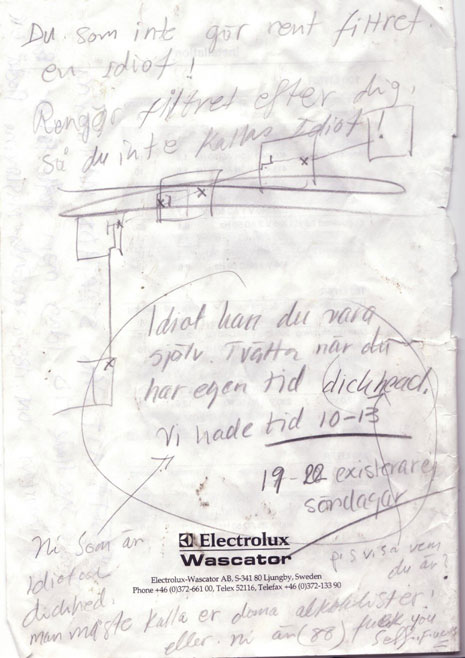 Du som inte gör rent filtret
en idiot!
Rengör filtret efter dig,
så du inte kallas Idiot!
Idiot kan du vara
själv. Tvätta när du
har egen tid dickhead.
Vi hade tid 10-13
19-22 existerar ej
söndagar
Ni som är
Idiot
dickhed.
visa vem
du är?
man måste kalla er alkoholister!
eller. ni än (88) fuck you
Electrolux
Wascator
Electrolux-Wascator AB, S-341 80 Ljungby, Sweden
Phone +46 (0)372-661 00, Telex 52116, Telefax +46 (0)372-133 90